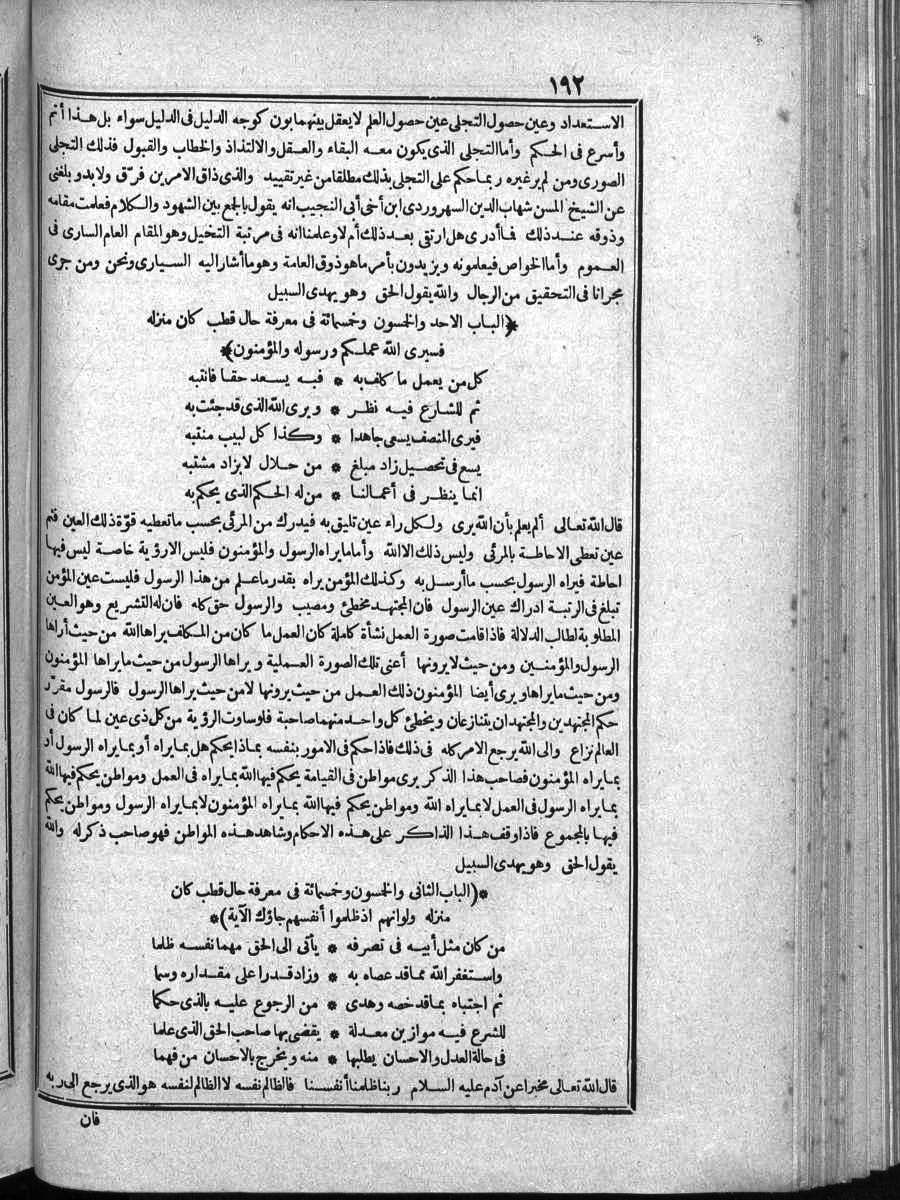 ١٩٢
الاستعداد وعين حصول التجلى عين حصول العلم لا يعقل بينهما بون كوجه الدليل فى الدليل سواء بل هذا أتم
وأسرع فى الحكم وأما التجلى الذى يكون معه البقاء والعقل والالتذاذ والخطاب والقبول فذلك التجلى
الصورى ومن لم ير غيره ربما حكم على التجلى بذلك مطلقا من غير تقييد والذى ذاق الامرين فرّق ولا بد وبلغنى
عن الشيخ المسن شهاب الدين السهروردى ابن أخى أبى النجيب انه يقول بالجمع بين الشهود والكلام فعلمت مقامه
وذوقه عند ذلك فما أدرى هل ارتقى بعد ذلك أم لا وعلمنا انه فى مرتبة التخيل وهو المقام العام السارى فى
العموم وأما الخواص فيعلمونه ويزيدون بأمر ما هو ذوق العامة وهو ما أشار اليه السيارى ونحن ومن جرى
مجرانا فى التحقيق من الرجال والله يقول الحق وهو يهدى السبيل
*(الباب الاحد والخمسون وخمسمائة فى معرفة حال قطب كان منزله
فسيرى الله عملكم ورسوله والمؤمنون)*
كل من يعمل ما كلف به * فبه يسعد حقا فانتبه
ثم للشارع فيه نظر * ويرى الله الذى قد جئت به
فيرى المنصف يسعى جاهدا * وكذا كل لبيب منتبه
يسع فى تحصيل زاد مبلغ * من حلال لا بزاد مشتبه
انما ينظر فى أعمالنا * من له الحكم الذى يحكم به
قال الله تعالى ألم يعلم بأن الله يرى ولكل راء عين تليق به فيدرك من المرئى بحسب ما تعطيه قوّة ذلك العين فثم
عين تعطى الاحاطة بالمرئى وليس ذلك الا لله وأما ما يراه الرسول والمؤمنون فليس الا رؤية خاصة ليس فيها
احاطة فيراه الرسول بحسب ما أرسل به وكذلك المؤمن يراه بقدر ما علم من هذا الرسول فليست عين المؤمن
تبلغ فى الرتبة ادراك عين الرسول فان المجتهد مخطئ ومصيب والرسول حق كله فان له التشريع وهو العين
المطلوبة لطالب الدلالة فاذا قامت صورة العمل نشأة كاملة كان العمل ما كان من المكلف يراها الله من حيث أراها
الرسول والمؤمنين ومن حيث لا يرونها أعنى تلك الصورة العملية ويراها الرسول من حيث ما يراها المؤمنون
ومن حيث ما يراها ويرى أيضا المؤمنون ذلك العمل من حيث يرونها لا من حيث يراها الرسول فالرسول مقرّر
حكم المجتهدين والمجتهدان يتنازعان ويخطئ كل واحد منهما صاحبة فلو ساوت الرؤية من كل ذى عين لما كان فى
العالم نزاع والى الله يرجع الامر كله فى ذلك فاذا حكم فى الامور بنفسه بماذا يحكم هل بما يراه أو بما يراه الرسول أو
بما يراه المؤمنون فصاحب هذا الذكر يرى مواطن فى القيامة يحكم فيها الله بما يراه فى العمل ومواطن يحكم فيها الله
بما يراه الرسول فى العمل لا بما يراه الله ومواطن يحكم فيها الله بما يراه المؤمنون لا بما يراه الرسول ومواطن يحكم
فيها بالمجموع فاذا وقف هذا الذاكر على هذه الاحكام وشاهد هذه المواطن فهو صاحب ذكر له والله
يقول الحق وهو يهدى السبيل
*(الباب الثانى والخمسون وخمسمائة فى معرفة حال قطب كان
منزله ولو انهم اذ ظلموا أنفسهم جاؤك الآية)*
من كان مثل أبيه فى تصرفه * يأتى الى الحق مهما نفسه ظلما
واستغفر الله مما قد عصاه به * وزاد قدرا على مقداره وسما
ثم اجتباه بما قد خصه وهدى * من الرجوع عليه بالذى حكما
للشرع فيه موازين معدلة * يقضى بها صاحب الحق الذى علما
فى حالة العدل والاحسان يطلبها * منه ويخرج بالاحسان من فهما
قال الله تعالى مخبرا عن آدم عليه السلام ربنا ظلمنا أنفسنا فالظالم نفسه لا الظالم لنفسه هو الذى يرجع الى ربه
فان